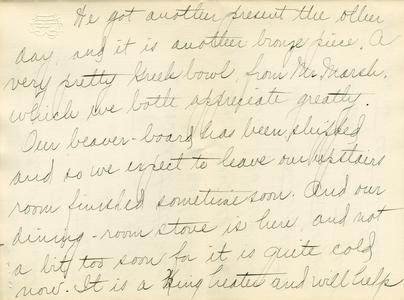 We got another present the other
day, and it is another bronze piece. A
very pretty Greek bowl, from Mr. Marsh,
which we both appreciate greatly.
Our beaver-board has been shipped
and so we expect to leave our upstairs
room finished sometime soon. And our
dining-room stove is here, and not
a bit too soon for it is quite cold
now. It is a King heater and will help